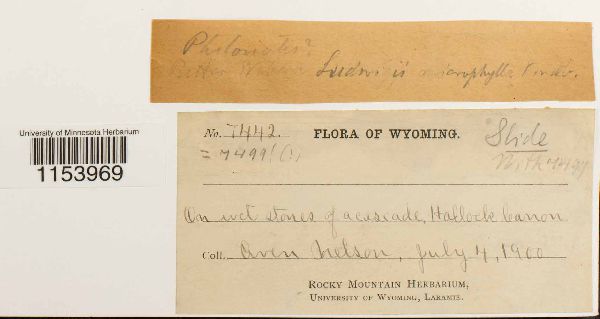 Philonotis?
Ludwigii microphylla
University of Minnesota Herbarium
1153969
No. 7442. FLORA OF WYOMING. Slide
= 7499! (?) With 7499
On wet stones of a cascade, Hallock Canon
Coll. Aven Nelson, July 4, 1900
ROCKY MOUNTAIN HERBARIUM,
UNIVERSITY OF WYOMING, LARAMIE.